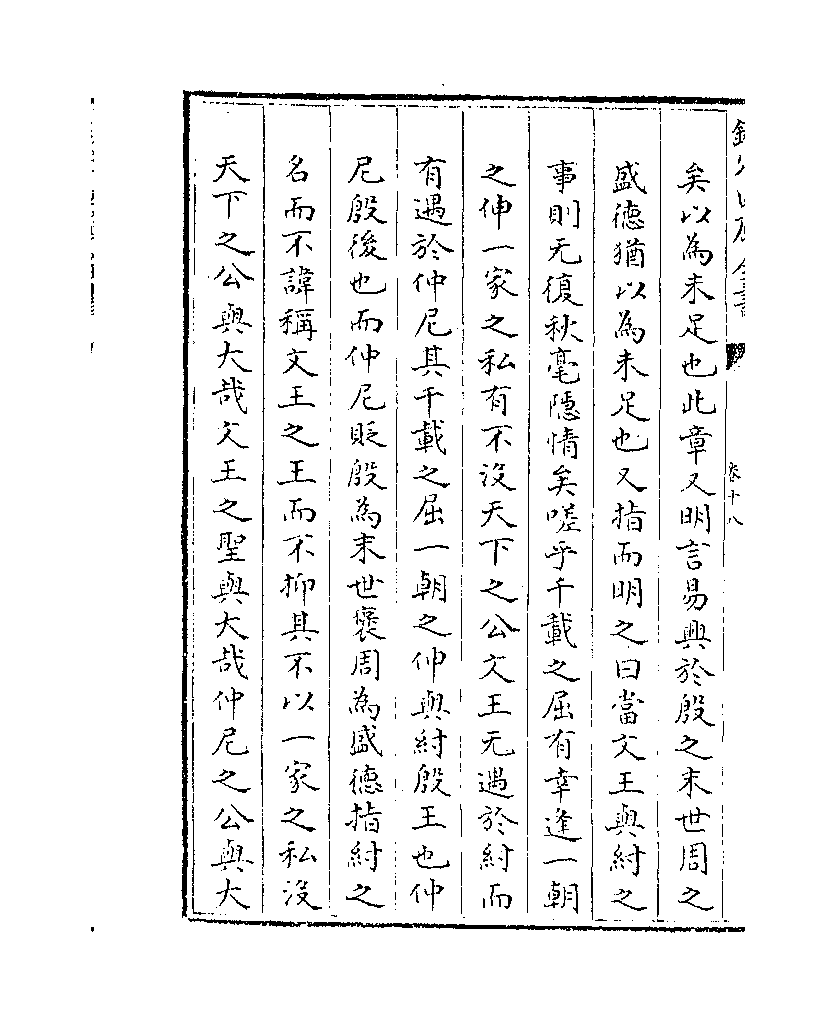 卷十八
矣以為未足也此章又明言易興於殷之末世周之
盛德猶以為未足也又指而明之曰當文王與紂之
事則无復秋毫隱情矣嗟乎千載之屈有幸逢一朝
之伸一家之私有不没天下之公文王无遇於紂而
有遇於仲尼其千載之屈一朝之伸與紂殷王也仲
尼殷後也而仲尼貶殷為末世褒周為盛德指紂之
名而不諱稱文王之王而不抑其不以一家之私没
天下之公與大哉文王之聖與大哉仲尼之公與大